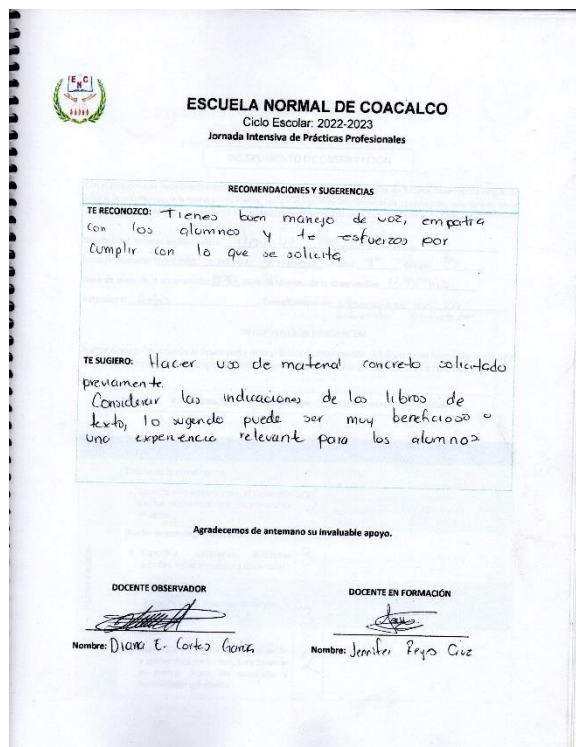 E N C
ESCUELA NORMAL DE COACALCO
Ciclo Escolar: 2022-2023
Jornada Intensiva de Prácticas Profesionales
RECOMENDACIONES Y SUGERENCIAS
TE RECONOZCO: Tienes buen manejo de voz, empatia
con los alumnos y te esfuerzos por
cumplir con lo que se solicita
TE SUGIERO: Hacer uso de material concreto solicitado
previamente.
Considerar las indicaciones de los libros de
texto, lo sugerido puede ser muy beneficioso o
una experiencia relevante para los alumnos
Agradecemos de antemano su invaluable apoyo.
DOCENTE OBSERVADOR
Nombre: Diana E. Cortes Garcia
DOCENTE EN FORMACIÓN
Nombre: Jennifer Reyes Cruz